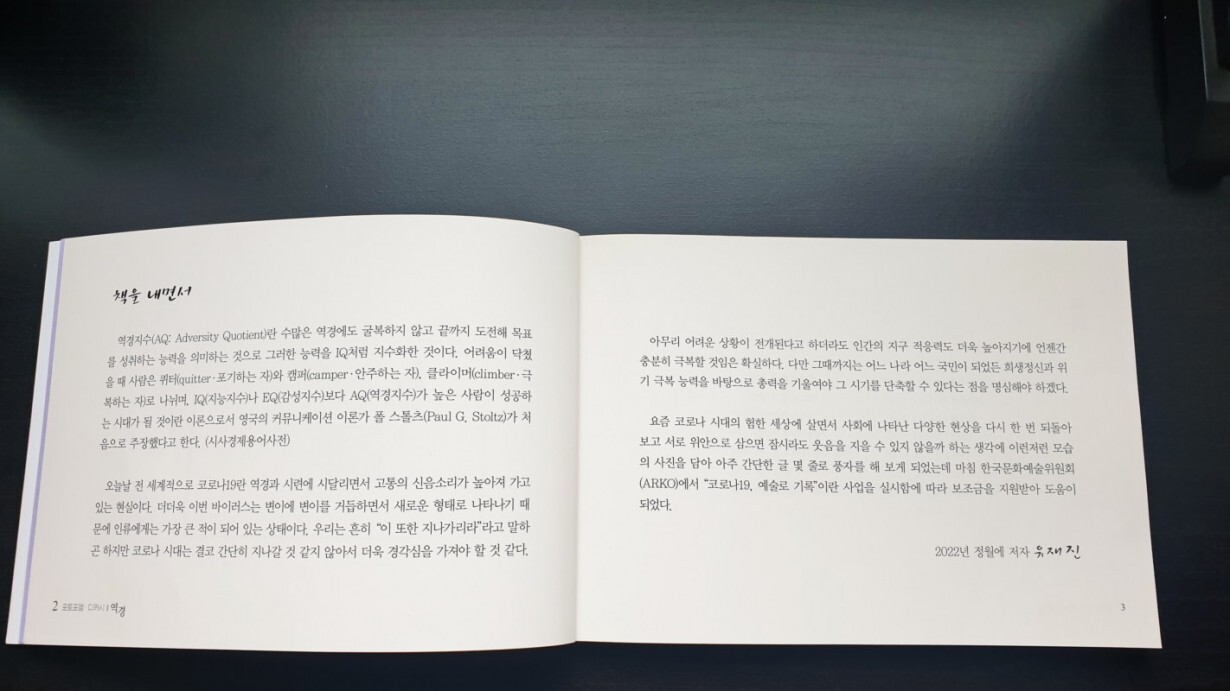 책을 내면서
역경지수(AQ: Adversity Quotient)란 수많은 역경에도 굴복하지 않고 끝까지 도전해 목표
를 성취하는 능력을 의미하는 것으로 그러한 능력을 IQ처럼 지수화한 것이다. 어려움이 닥쳤
을 때 사람은 퀴터(quitter·포기하는 자)와 캠퍼(camper·안주하는 자), 클라이머(climber·극
복하는 자)로 나뉘며, IQ(지능지수)나 EQ(감성지수)보다 AQ(역경지수)가 높은 사람이 성공하
는 시대가 될 것이란 이론으로서 영국의 커뮤니케이션 이론가 폴 스톨츠(Paul G. Stoltz)가 처
음으로 주장했다고 한다. (시사경제용어사전)
오늘날 전 세계적으로 코로나19란 역경과 시련에 시달리면서 고통의 신음소리가 높아져 가고
있는 현실이다. 더더욱 이번 바이러스는 변이에 변이를 거듭하면서 새로운 형태로 나타나기 때
문에 인류에게는 가장 큰 적이 되어 있는 상태이다. 우리는 흔히 “이 또한 지나가리라”라고 말하
곤 하지만 코로나 시대는 결코 간단히 지나갈 것 같지 않아서 더욱 경각심을 가져야 할 것 같다.
2 포토포엠·디카시 | 역경
아무리 어려운 상황이 전개된다고 하더라도 인간의 지구 적응력도 더욱 높아지기에 언젠간
충분히 극복할 것임은 확실하다. 다만 그때까지는 어느 나라 어느 국민이 되었든 희생정신과 위
기 극복 능력을 바탕으로 총력을 기울여야 그 시기를 단축할 수 있다는 점을 명심해야 하겠다.
요즘 코로나 시대의 험한 세상에 살면서 사회에 나타난 다양한 현상을 다시 한 번 되돌아
보고 서로 위안으로 삼으면 잠시라도 웃음을 지을 수 있지 않을까 하는 생각에 이런저런 모습
의 사진을 담아 아주 간단한 글 몇 줄로 풍자를 해 보게 되었는데 마침 한국문화예술위원회
(ARKO)에서 “코로나19, 예술로 기록”이란 사업을 실시함에 따라 보조금을 지원받아 도움이
되었다.
2022년 정월에 저자 유재진
3